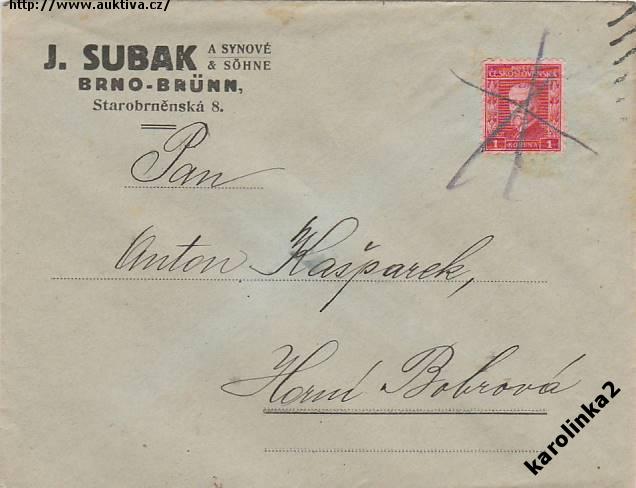 http://www.auktiva.cz/
J. SUBAK A SYNOVÉ & SÖHNE
BRNO-BRÜNN,
Starobrněnská 8.
POŠTA
ČESKOSLOVENSKÁ
1 KORUNA 1
Pan
Anton Kašparek,
Horní Bobrová
karolinka2